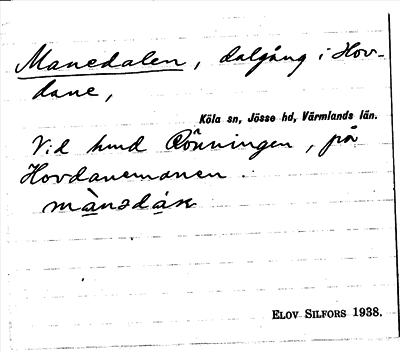 Manedalen, dalgång i Hov-
dane,
Köla sn, Jösse hd, Värmlands län.
Vid hmd Rönningen, på
Hovdanemonen.
mànsdák
ELOV SILFORS 1938.